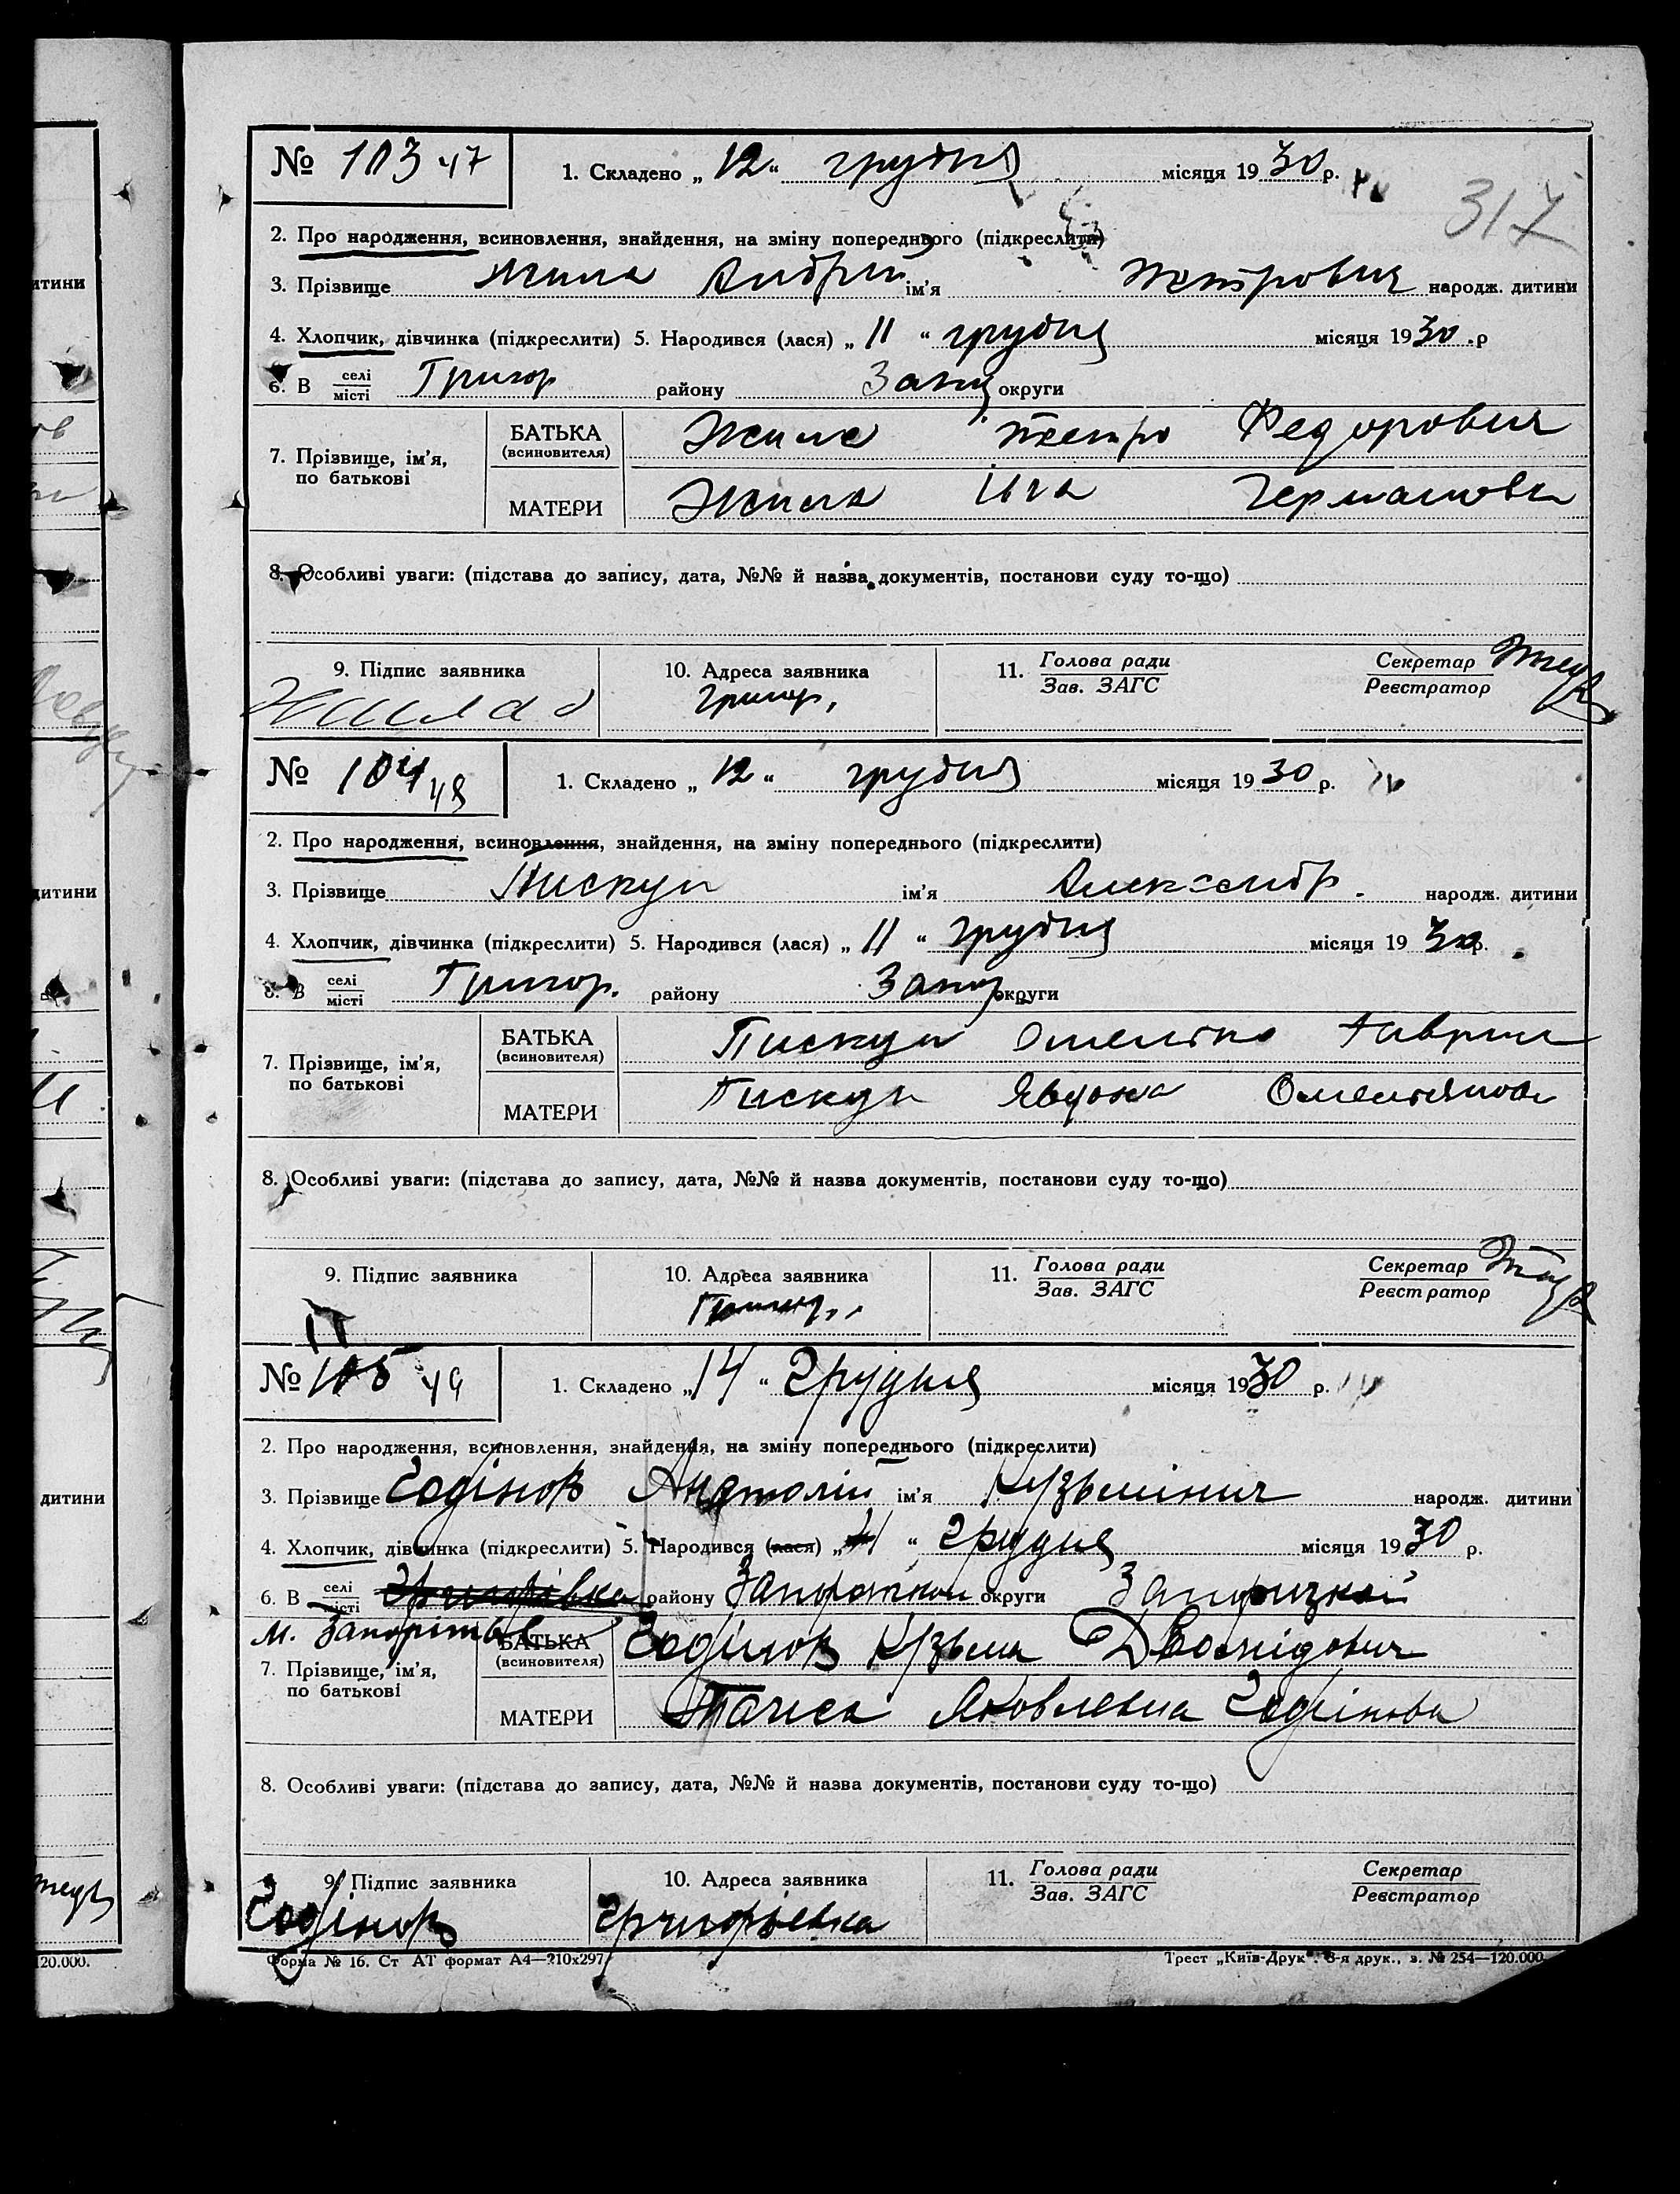 317
№ 103 47
1. Складено „ 12 “ грудня місяця 1930 р.
2. Про народження, всиновлення, знайдення, на зміну попереднього (підкреслити)
3. Прізвище Жила Андрій ім'я Петрович народж. дитини
4. Хлопчик, дівчинка (підкреслити) 5. Народився (лася) „ 11 “ грудня місяця 1930 .р
6. В селі місті Григор району Запор округи
7. Прізвище, ім'я, по батькові
БАТЬКА (всиновителя) Жила Петро Федорович
МАТЕРИ Жила Германовн
8. Особливі уваги: (підстава до запису, дата, №№ й назва документів, постанови суду то-що)
9. Підпис заявника
10. Адреса заявника
Григор.
11. Голова ради
Зав. ЗАГС
Секретар
Реєстратор
№ 104 48
1. Складено „ 12 “ грудня місяця 1930 р.
2. Про народження, всиновлення, знайдення, на зміну попереднього (підкреслити)
3. Прізвище Пискун ім'я Александр. народж. дитини
4. Хлопчик, дівчинка (підкреслити) 5. Народився (лася) „ 11 “ грудня місяця 19 30 р.
6. В селі місті Григор. району Запор округи
7. Прізвище, ім'я, по батькові
БАТЬКА (всиновителя) Пискун Омелько Гаврил
МАТЕРИ Пискун Явдоха Омельянов
8. Особливі уваги: (підстава до запису, дата, №№ й назва документів, постанови суду то-що)
9. Підпис заявника
10. Адреса заявника
Григор.
11. Голова ради
Зав. ЗАГС
Секретар
Реєстратор
№ 105 49
1. Складено „ 14 “ Грудня місяця 1930 р.
2. Про народження, всиновлення, знайдення, на зміну попереднього (підкреслити)
3. Прізвище Годінов Анатолій ім'я Кузьмінич народж. дитини
4. Хлопчик, дівчинка (підкреслити) 5. Народився (лася) „ “ Грудня місяця 1930 р.
6. В селі місті Григорівка району округи
м. Запоріжжє
7. Прізвище, ім'я, по батькові
БАТЬКА (всиновителя) Годінов Кузьма
МАТЕРИ Таиса Яковлевна Годінова
8. Особливі уваги: (підстава до запису, дата, №№ й назва документів, постанови суду то-що)
9. Підпис заявника
Годінов
10. Адреса заявника
Григорьевка
11. Голова ради
Зав. ЗАГС
Секретар
Реєстратор
Форма № 16. Ст АТ формат А4—210х297
Трест „Київ-Друк“. 3-я друк., з. № 254—120.000
дитини
дитини
20.000.